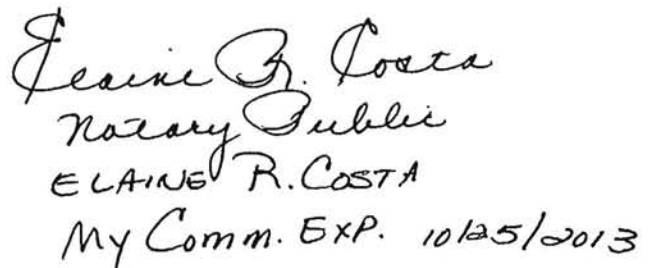 Elaine R. Costa
Notary Public
ELAINE R. COSTA
My Comm. EXP. 10/25/2013